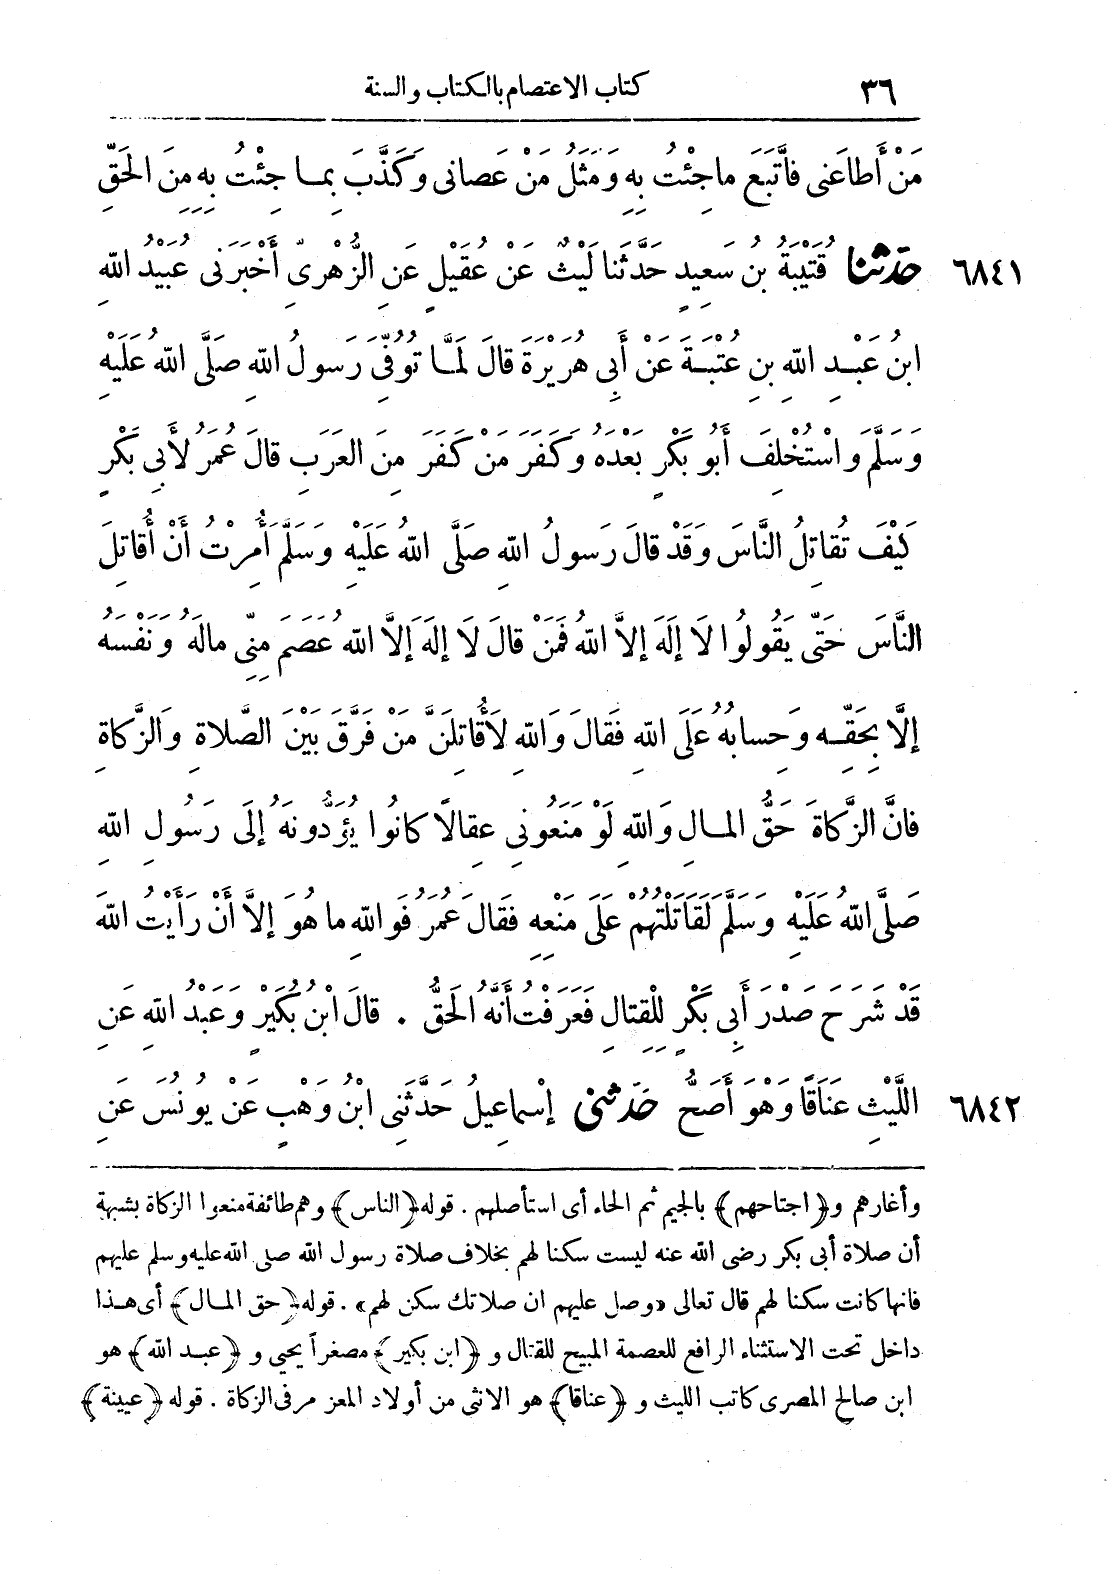 ٣٦ كتاب الاعتصام بالكتاب والسنة
مَنْ أَطاعَنى فاتَّبَعَ ماجِئْتُ بِهِ وَمَثَلُ مَنْ عَصانى وَكَذَّبَ بِمـا جِئْتُ بِهِ مِنَ الحَقِّ
٦٨٤١ حَدَّثَنا قُتَيْبَةُ بنُ سَعيدٍ حَدَّثَنا لَيْثٌ عَنْ عُقَيْلٍ عَنِ الزُّهْرِىِّ أَخْبَرَنى عُبَيْدُ اللهِ
ابنُ عَبْـدِ اللهِ بنِ عُتْبَـةَ عَنْ أَبِى هُرَيْرَةَ قالَ لَمَّـا تُوُفِّىَ رَسولُ اللهِ صَلَّى اللهُ عَلَيْهِ
وَسَلَّمَ واسْتُخْلِفَ أَبُو بَكْرٍ بَعْدَهُ وَكَفَرَ مَنْ كَفَرَ مِنَ العَرَبِ قالَ عُمَرُ لأَبِى بَكْرٍ
كَيْفَ تُقاتِلُ النَّاسَ وَقَدْ قالَ رَسولُ اللهِ صَلَّى اللهُ عَلَيْهِ وَسَلَّمَ أُمِرْتُ أَنْ أُقاتِلَ
النَّاسَ حَتَّى يَقُولُوا لَا إِلَهَ إِلاَّ اللهُ فَمَنْ قالَ لَا إِلَهَ إِلاَّ اللهُ عَصَمَ مِنِّى مالَهُ وَنَفْسَهُ
إِلَّا بِحَقِّـهِ وَحِسابُهُ عَلَى اللهِ فَقالَ وَاللهِ لَأُقاتِلَنَّ مَنْ فَرَّقَ بَيْنَ الصَّلاةِ وَالزَّكاةِ
فانَّ الزَّكاةَ حَقُّ المـالِ وَاللهِ لَوْ مَنَعُونِى عِقالاً كانُوا يُؤَدُّونَهُ إِلَى رَسُولِ اللهِ
صَلَّى اللهُ عَلَيْهِ وَسَلَّمَ لَقَاتَلْتُهُمْ عَلَى مَنْعِهِ فَقَالَ عُمَرُ فَواللهِ ما هُوَ إِلاَّ أَنْ رَأَيْتُ اللهَ
قَدْ شَرَحَ صَدْرَ أَبِى بَكْرٍ لِلْقِتالِ فَعَرَفْتُ أَنَّهُ الحَقُّ . قالَ ابْنُ بُكَيْرٍ وَعَبْدُ اللهِ عَنِ
٦٨٤٢ اللَّيْثِ عَنَاقًا وَهْوَ أَصَحُّ حَدَّثَنى إِسْماعِيلُ حَدَّثَنِى ابْنُ وَهْبٍ عَنْ يُونُسَ عَنِ
وأغارهم و﴿اجتاحهم﴾ بالجيم ثم الحاء أى استأصلهم . قوله﴿الناس﴾ وهم طائفة منعوا الزكاة بشبهة
أن صلاة أبى بكر رضى الله عنه ليست سكنا لهم بخلاف صلاة رسول الله صلى الله عليه وسلم عليهم
فانها كانت سكنا لهم قال تعالى «وصل عليهم ان صلاتك سكن لهم» . قوله﴿حق المـال﴾ أى هـذا
داخل تحت الاستثناء الرافع للعصمة المبيح للقتال و ﴿ابن بكير﴾ مصغراً يحيى و ﴿عبـد الله﴾ هو
ابن صالح المصرى كاتب الليث و ﴿عناقا﴾ هو الانثى من أولاد المعز مر فى الزكاة . قوله ﴿عيينة﴾